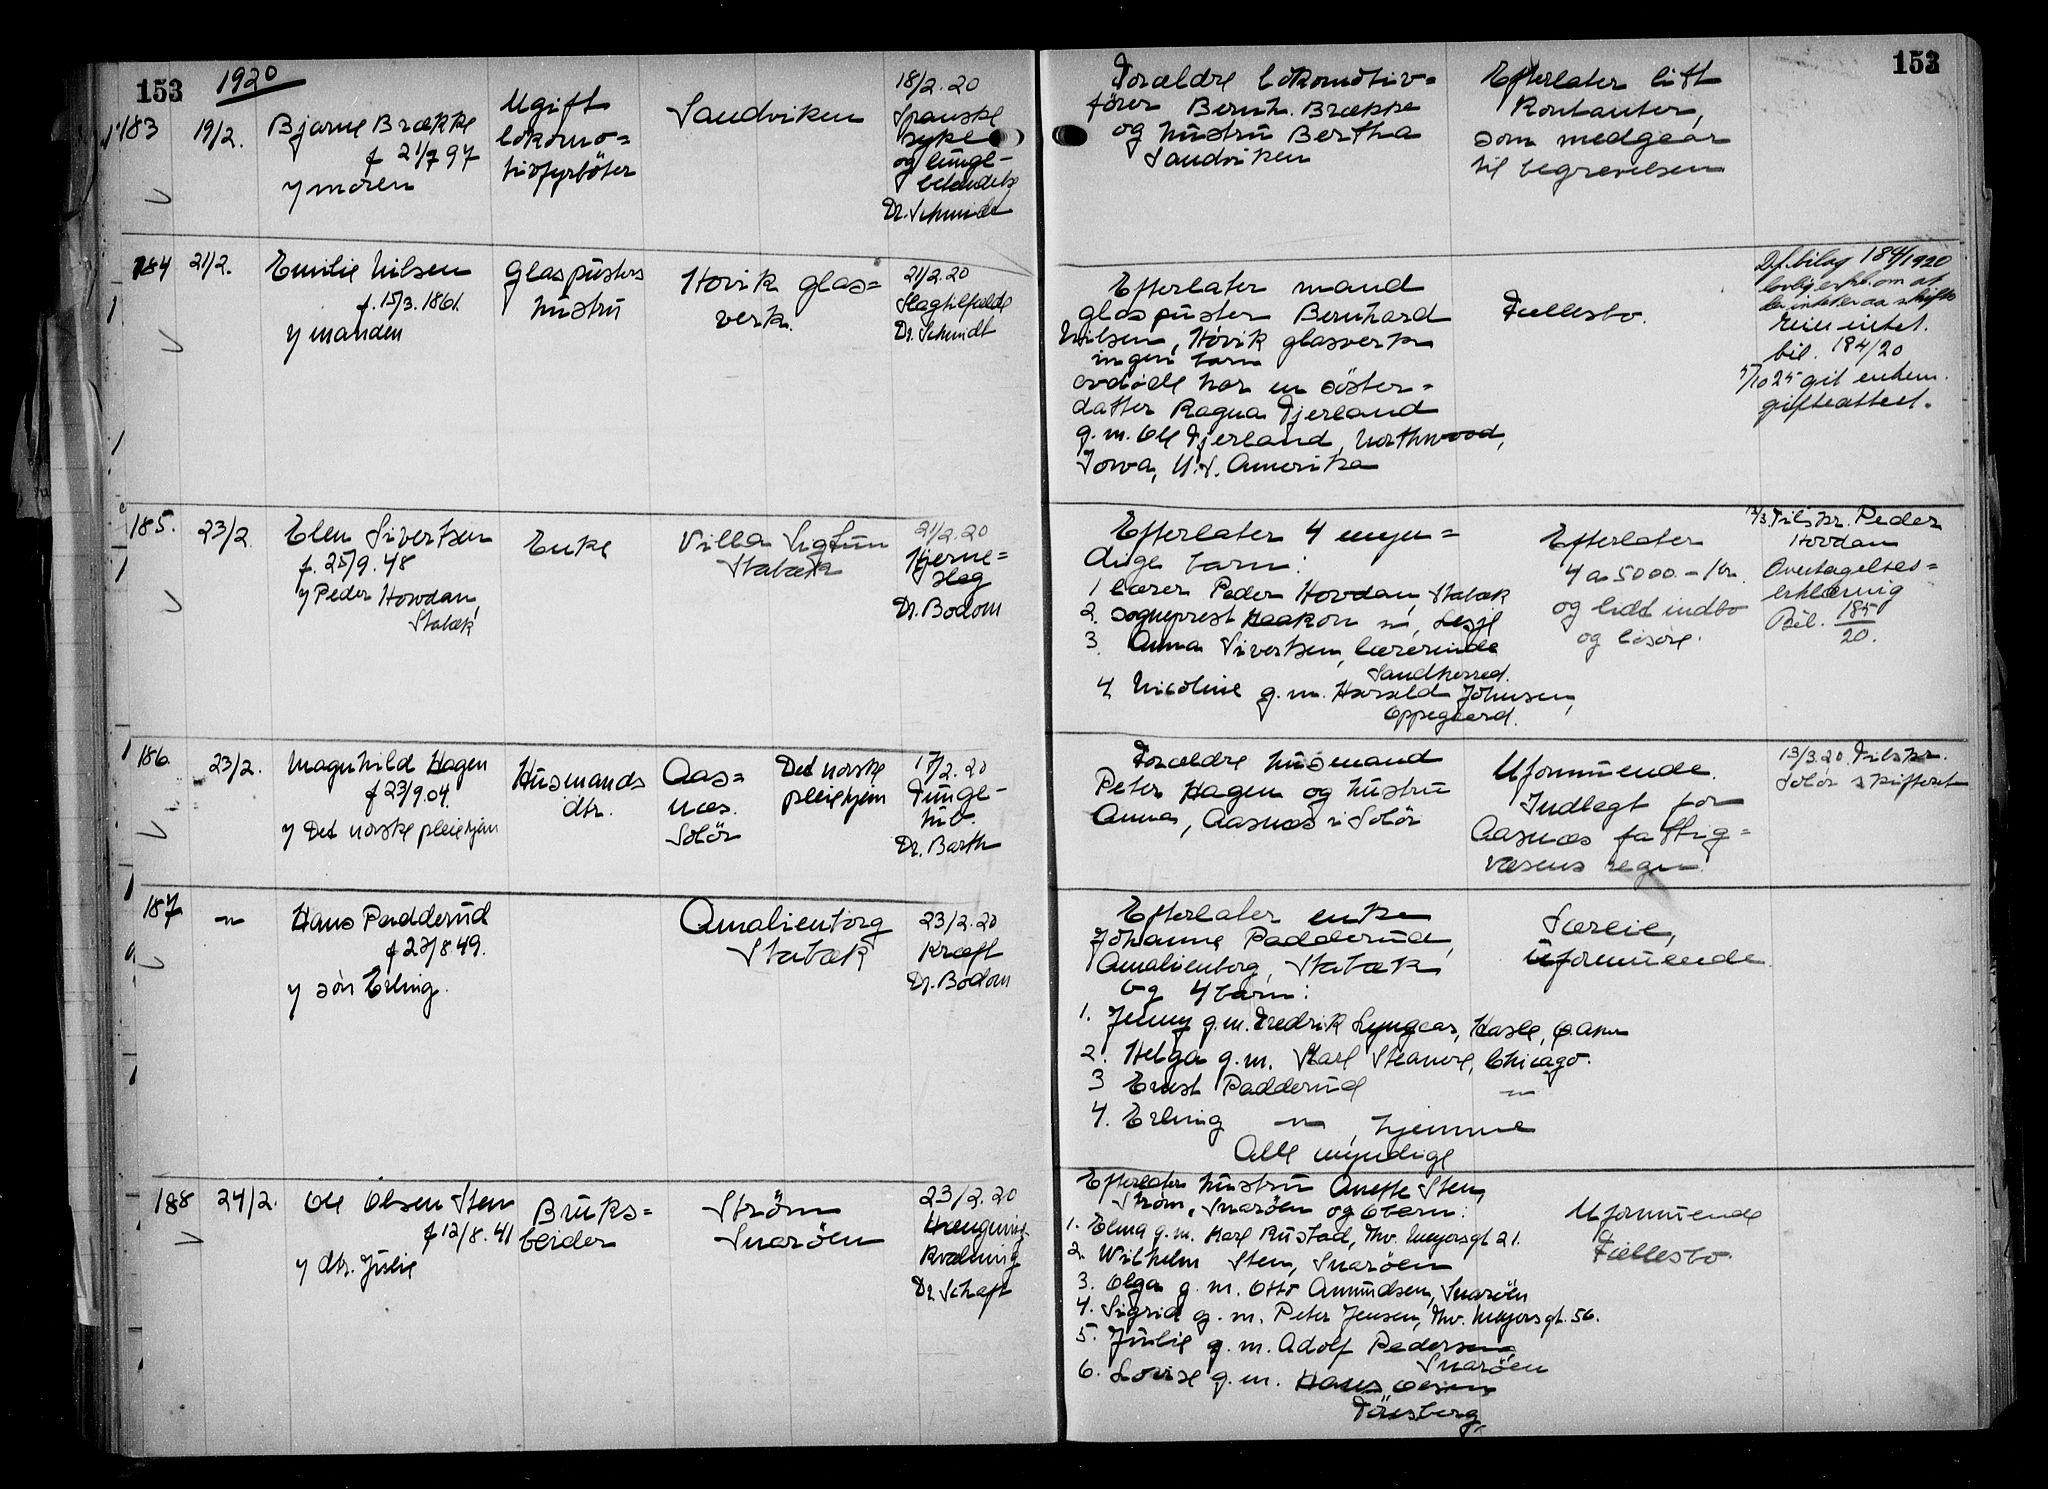 153
1920
153
183
19/2.
Bjarne Brække
f 21/7 97
v moren
Ugift
lokomo=
tivfyrböter
Sandviken
18/2.20
Spanske
syke
og lunge-
betændelse
Dr. Schmidt
Forældre lokomotiv=
förer Bernh. Brække
og hustru Bertha
Sandviken
Efterlater litt
kontanter,
som medgaar
til begravelsen
184
21/2.
Emilie Nilsen
f. 15/3.1861.
v manden
Glaspusters
hustru
Hövik glas=
verk.
21/2.20
Slagtilfælde
Dr. Schmidt
Efterlater mand
glaspuster Bernhard
Nilsen, Hövik glasverk
ingen barn
avdöde har en söster=
datter Ragna Fjerland
g.m. Ole Fjerland, Northwood,
Iowa, U.S. Amerika
Fællesbo.
Df. bilag 184/1920
bil. 184/20
5/10 25 git enkem.
gifteattest.
185.
23/2
Elen Sivertsen
f. 25/9.48
v Peder Hovdan,
Stabæk
Enke
Villa Sigtun
Stabæk
21/2.20
Hjerne=
slag
Dr. Bodom
Efterlater 4 myn=
dige barn:
1 lærer Peder Hovdan, Stabæk
2. sogneprest Haakon "", Lesje
3. Anna Sivertsen, lærerinde
Sandherred.
4. Nicoline g.m. Harald Johnsen,
Oppegaard.
Efterlater
4 a 5000.- kr.
og lidt indbo
og lösöre.
13/3. Tilskr. Peder
Hovdan
Overtagelses=
erklæring
Bil. 185/20.
186.
23/2.
Magnhild Hagen
f 23/9.04.
v Det norske pleiehjem
Husmands
dtr.
Aas=
næs.
Solör
Det norske
pleiehjem
17/2.20
Tunge-
tub.
Dr. Barth
Forældre husmand
Peter Hagen og hustru
Anna, Aasnæs i Solör
Uformuende.
Indlagt for
Aasnæs fattig=
væsens regn.
13/3.20 Tilskr.
Solör skifteret
187
"
Hans Padderud
f 23/8.49.
v sön Erling.
Amalienborg
Stabæk
23/2.20
Kræft
Dr. Bodom
Efterlater enke
Johanne Padderud,
Amalienborg, Stabæk
og 4 barn:
1. Jenny g.m. Fredrik Lyngaas, Hasle, Ø. Aker
2. Helga g.m. Karl Steanore, Chicago.
3 Ernst Padderud "
4. Erling " , hjemme
Alle myndige
Særeie,
uformuende.
188
24/2.
Ole Olsen Sten
f 12/8.41
v dtr. Julie
Bruks=
beider
Ström
Snaröen
23/2.20
Hængning
Kvælning
Dr. Schaft
Efterlater hustru Anette Sten,
Ström, Snaröen og 6 barn:
1. Elma g.m. Karl Rustad, Thv. Meyersgt 21.
2. Wilhelm Sten, Snaröen
3. Olga g.m. Otto Amundsen, Snaröen
4. Sigrid g.m. Peter Jensen, Thv. Meyersgt. 56.
5. Julie g.m. Adolf Pedersen
Snaröen
6. Lovise g.m. Hans Olsen
Tönsberg.
Uformuende
Fællesbo.